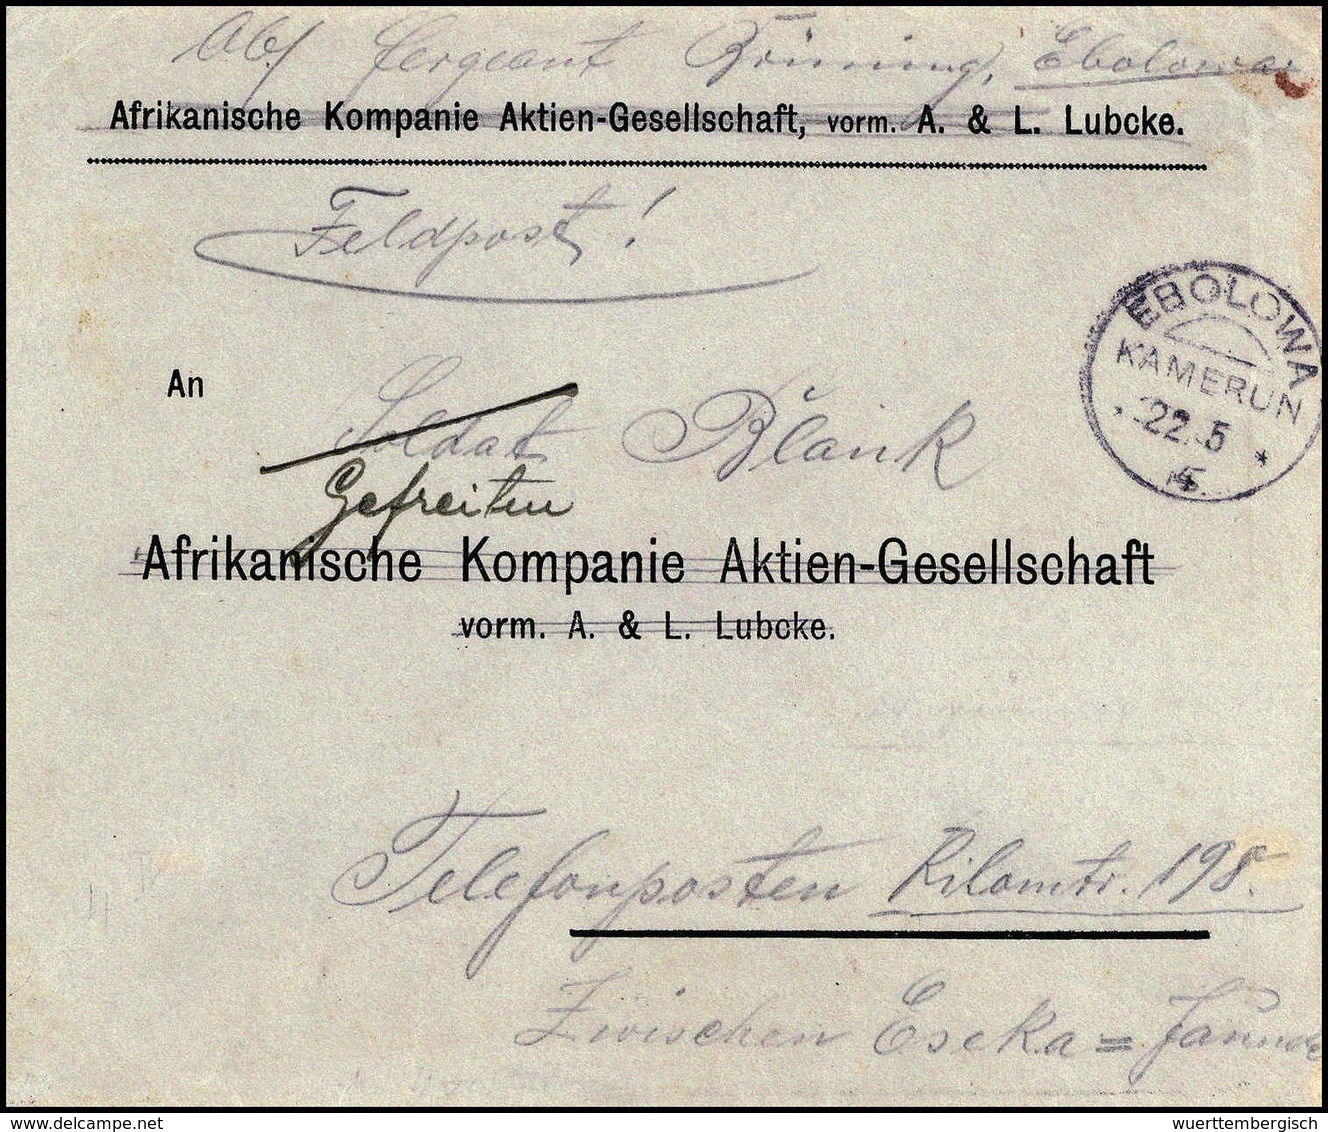 Abs. Sergeant Brüning, Ebolowa
Afrikanische Kompanie Aktien-Gesellschaft, vorm. A. & L. Lubcke.
Feldpost!
EBOLOWA
KAMERUN
22.5
*
An Soldat Blank
Gefreiten
Afrikanische Kompanie Aktien-Gesellschaft
vorm. A. & L. Lubcke.
Telefonposten Kilomtr. 198.
Zwischen Eseka = Jaunde
www.delcampe.net
wuerttembergisch